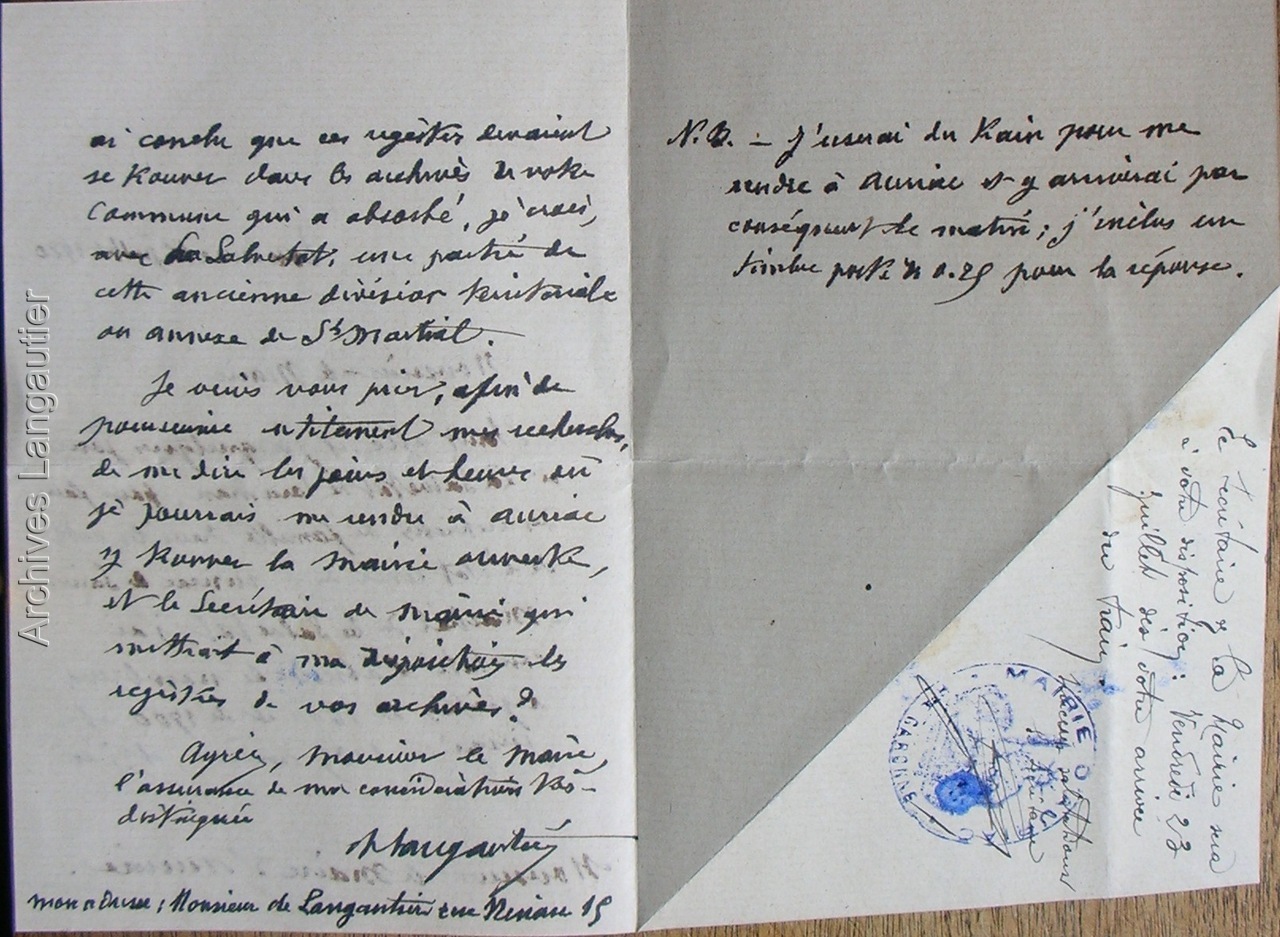 ai conclu que ces registres devraient
se trouver dans les archives de votre
Commune qui a absorbé, je crois,
avec La Salvetat, une partie de
cette ancienne division territoriale
ou annexe de St Martial.
Je veux vous prier, afin de
poursuivre utilement mes recherches,
de me dire les jours et heures où
je pourrais me rendre à Auriac
y trouver la Mairie ouverte,
et le Secrétaire de Mairie qui
mettrait à ma disposition les
registres de vos archives ?
Agréez, Monsieur le Maire,
l'assurance de ma considération très
distinguée
Langautier
mon adresse : Monsieur de Langautier rue 15
N.B. - J'userai du train pour me
rendre à Auriac et y arriverai par
conséquent le matin ; j'inclus un
timbre poste de 0.25 pour la réponse.
Le secrétaire de la Mairie sera
à votre disposition : Vendredi 23
juillet dès votre arrivée
du train.
salutations
MAIRIE D
GARONNE
Archives Langautier